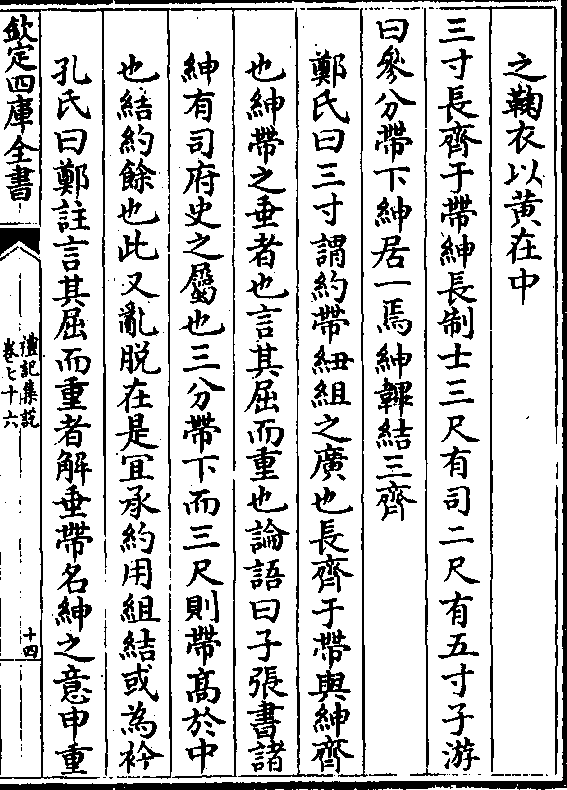 之鞠衣以黄在中
三寸長齊于帶紳長制士三尺有司二尺有五寸子游
曰參分帶下紳居一焉紳韠結三齊
鄭氏曰三寸謂約帶紐組之廣也長齊于帶與紳齊
也紳帶之垂者也言其屈而重也論語曰子張書諸
紳有司府史之屬也三分帶下而三尺則帶髙於中
也結約餘也此又亂脱在是宜承約用組結或為衿
孔氏曰鄭註言其屈而重者解垂帶名紳之意申重
欽定四庫全書
禮記集説
卷七十六
十四